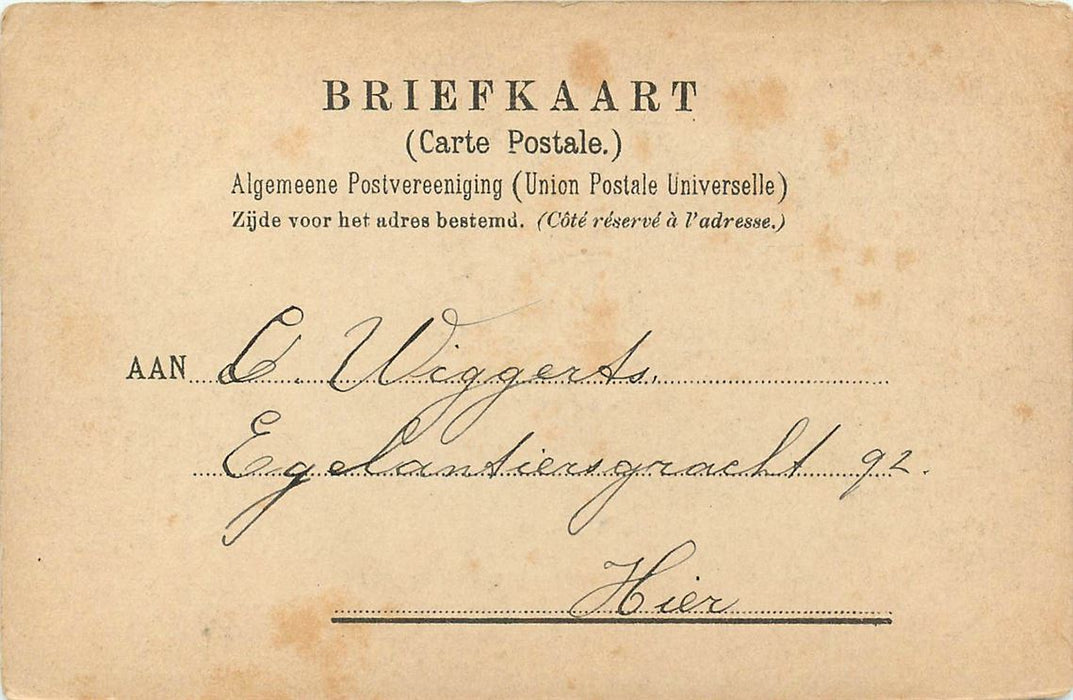 BRIEFKAART
(Carte Postale.)
Algemeene Postvereeniging (Union Postale Universelle)
Zijde voor het adres bestemd. (Côté réservé à l'adresse.)
AAN C. Wiggerts.
Egelantiersgracht 92.
Hier